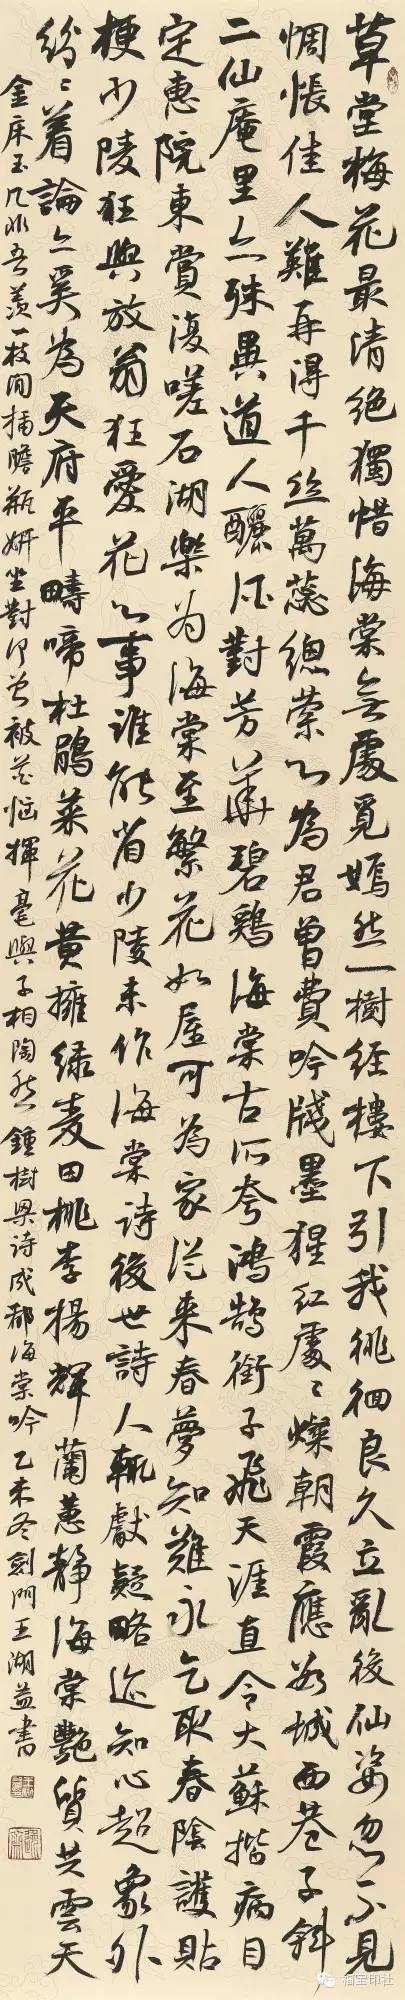 草堂梅花最清絕獨惜海棠無處覓嫣然一樹經樓下引我徘徊良久立亂後仙姿忽不見
惆悵佳人難再得千絲萬蕊總縈心為君曾費吟牋墨猩紅處〻燦朝霞應為城西巷子斜
二仙庵里亦殊異道人釀酒對芳華碧鷄海棠古所夸鴻鵠銜子飛天涯直令大蘇揩病目
定惠院東賞復嗟石湖樂為海棠至繁花如屋可為家從來春夢知難永乞取春陰護貼
梗少陵狂與放翁狂愛花心事誰能省少陵未作海棠詩後世詩人輒獻疑略迹知心超象外
紛〻着論亦奚為天府平疇啼杜鵑菜花黃擁綠麥田桃李揚輝蘭蕙靜海棠艷質共雲天
金床玉几非吾羨一枝閒插膽瓶妍坐對何曾被花惱揮毫與子相陶然鍾樹梁詩成都海棠吟乙未冬劍門王湖益書
福宝印社